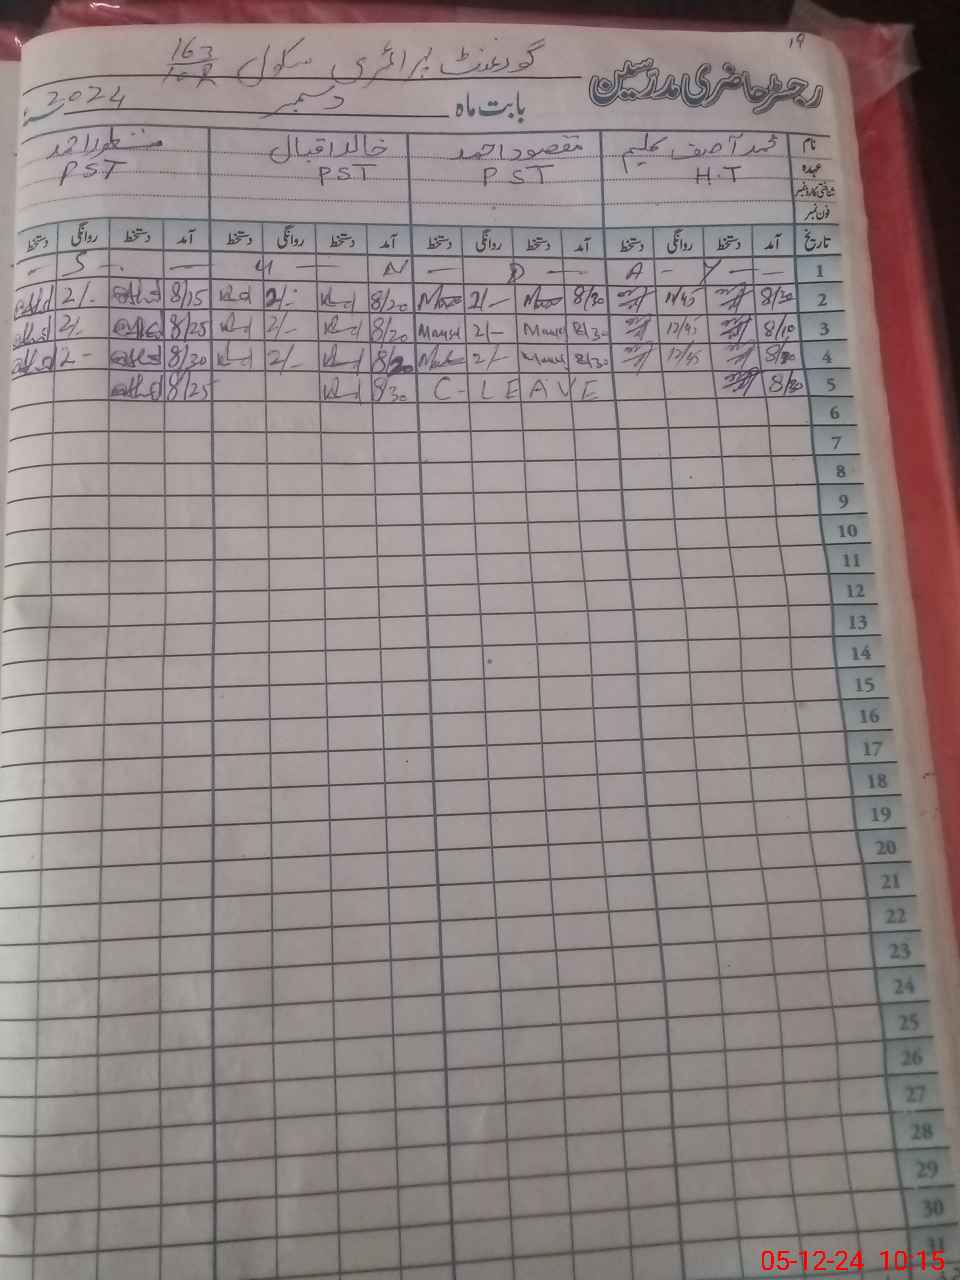 19
رجسٹر حاضری مدرسین گورنمنٹ پرائمری سکول 163
بابت ماہ دسمبر 2024
نام محمد آصف مقصود احمد خالد اقبال منظور احمد
عہدہ H.T PST PST PST
شناختی کارڈ نمبر
فون نمبر
تاریخ آمد دستخط روانگی دستخط آمد دستخط روانگی دستخط آمد دستخط روانگی دستخط آمد دستخط روانگی دستخط
1 — — Y — A — D — N — — U — — S —
2 8/30 11/45 8/30 2/- 8/20 2/- 8/25 2/-
3 8/10 12/45 8/30 2/- 8/20 2/- 8/25 2/-
4 8/30 12/45 8/30 2/- 8/20 2/- 8/30 2-
5 8/30 C-LEAVE 8/30 8/25
6
7
8
9
10
11
12
13
14
15
16
17
18
19
20
21
22
23
24
25
26
27
28
29
30
31
05-12-24 10:15